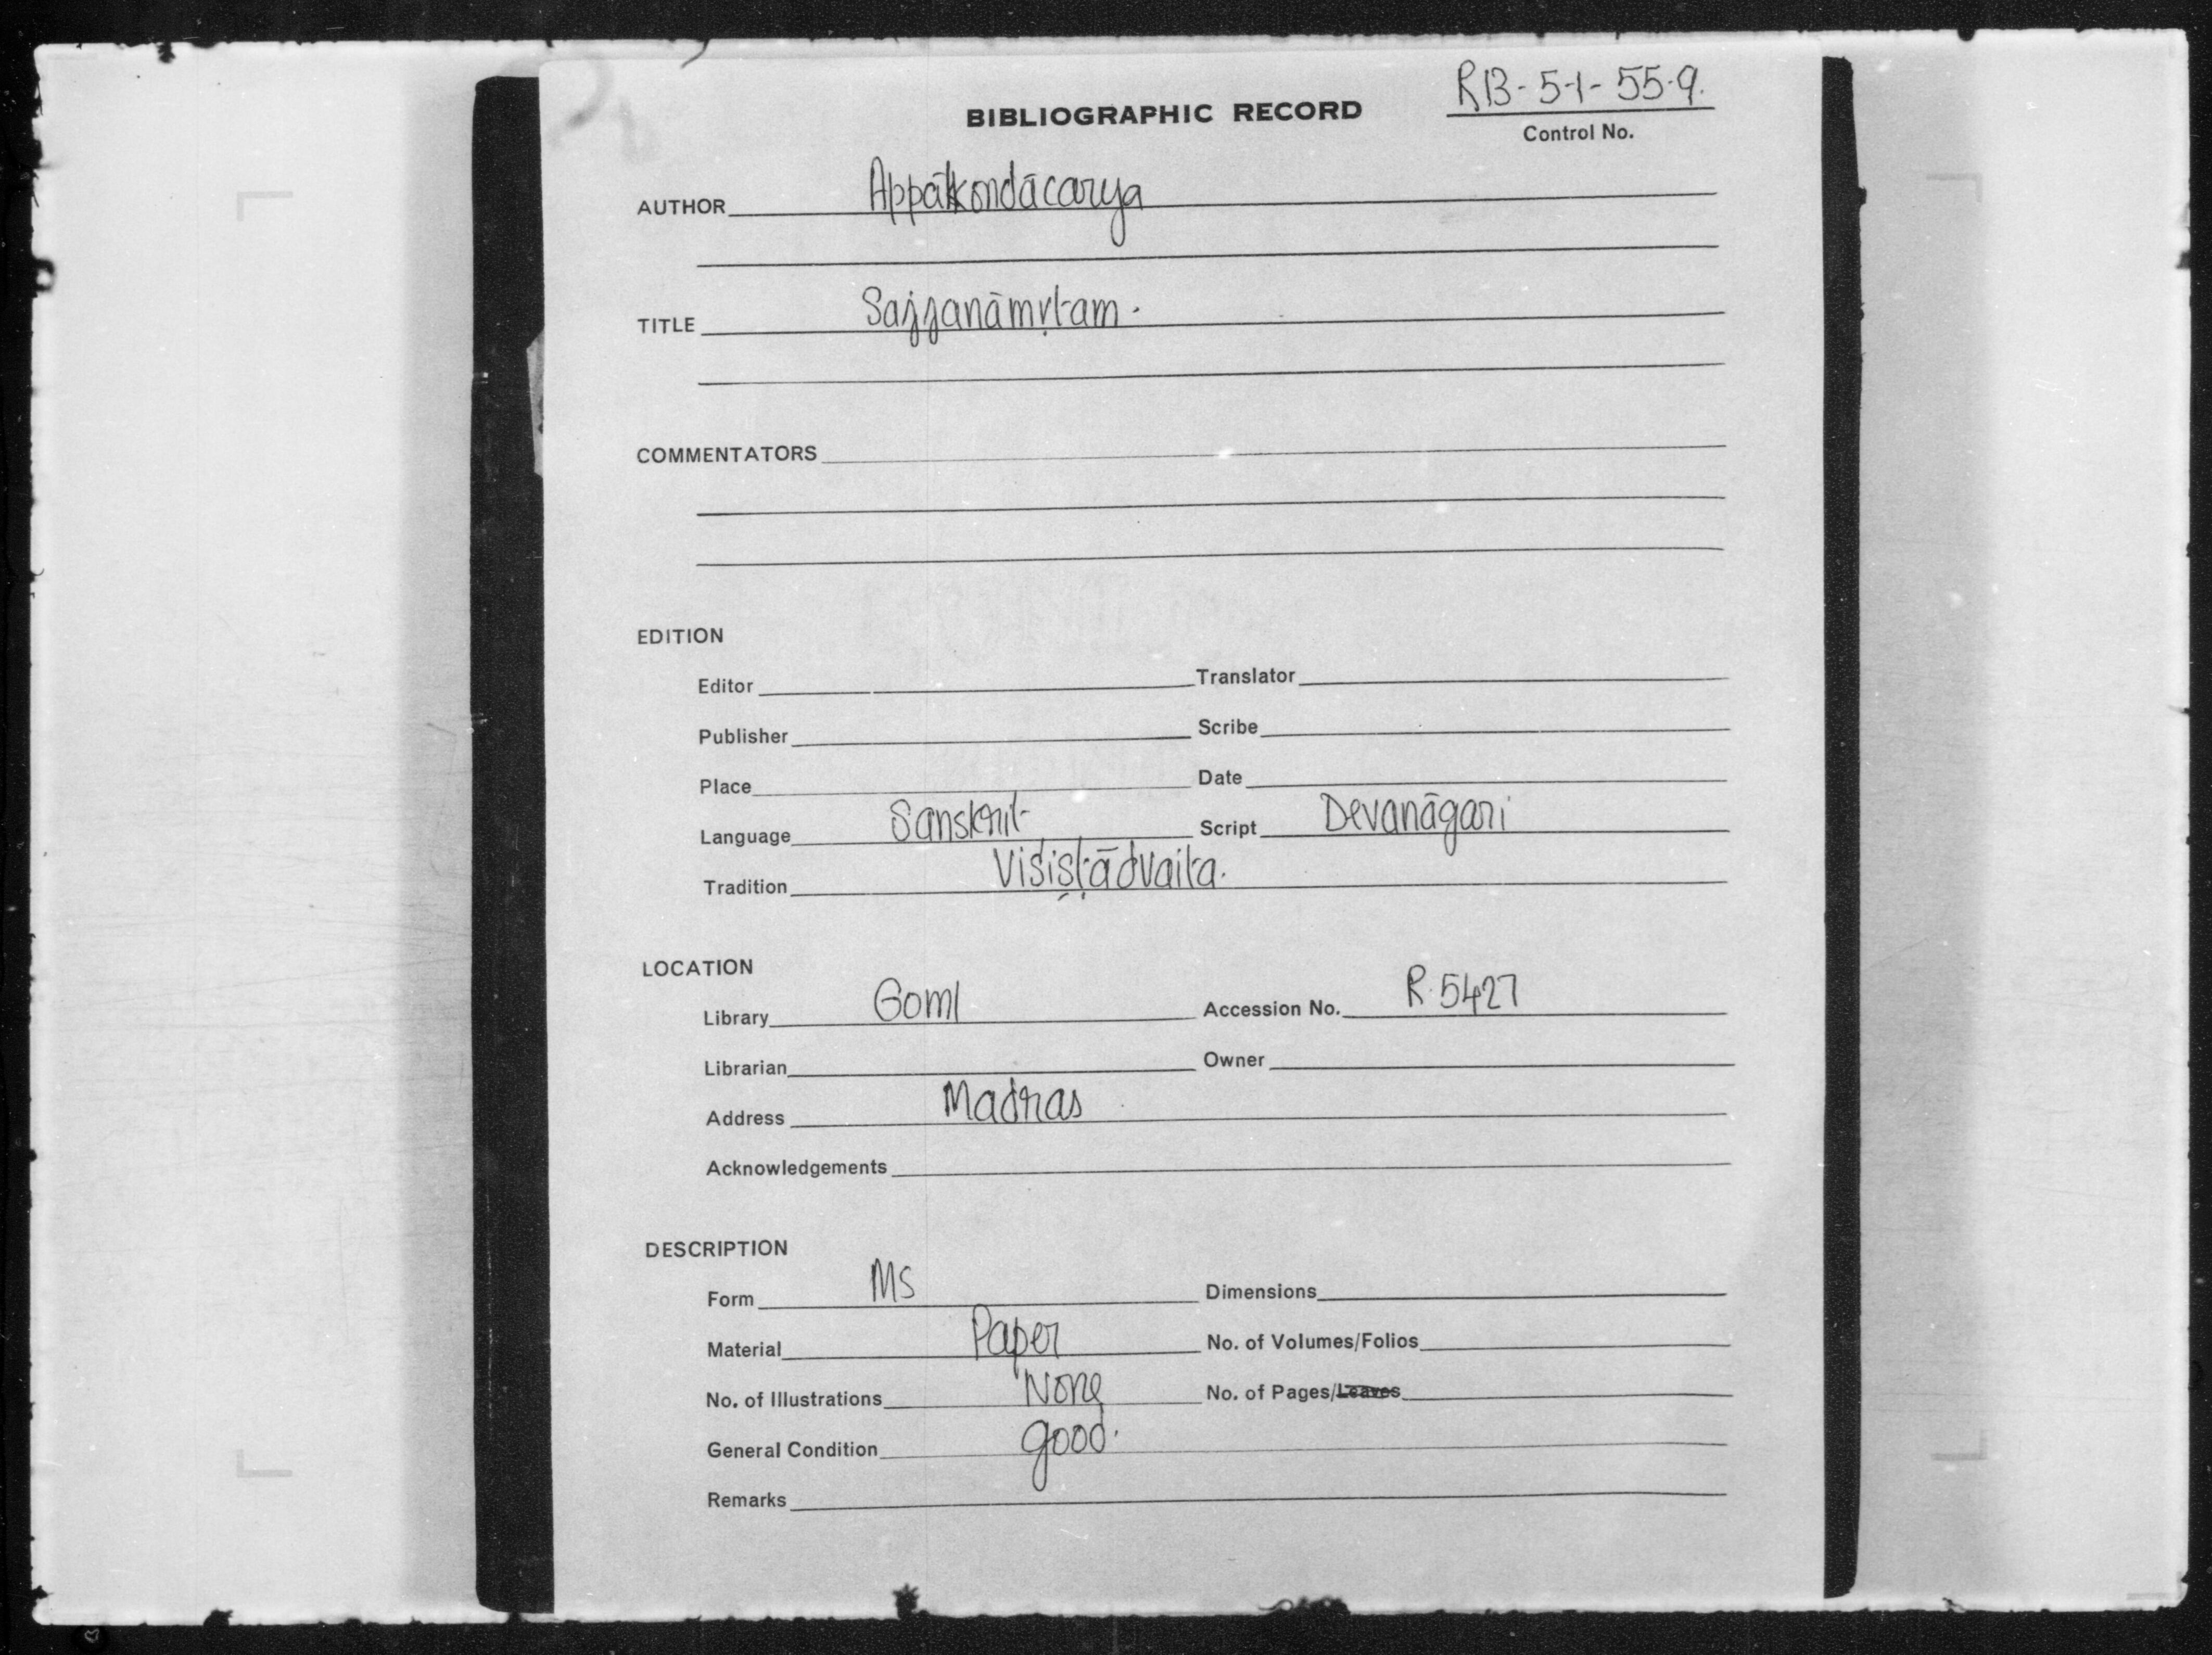 RB-51-55-9.
BIBLIOGRAPHIC RECORD
Control No.
AUTHOR Appākondācarya
TITLE Sajjanāmṛtam.
COMMENTATORS
EDITION
Editor Translator
Publisher Scribe
Place Date
Language Sanskrit Script Devanāgari
Tradition Viśiṣṭādvaita.
LOCATION
Library Goml Accession No. R. 5427
Librarian Owner
Address Madras
Acknowledgements
DESCRIPTION
Form MS Dimensions
Material Paper No. of Volumes/Folios
No. of Illustrations None No. of Pages/Leaves
General Condition good.
Remarks